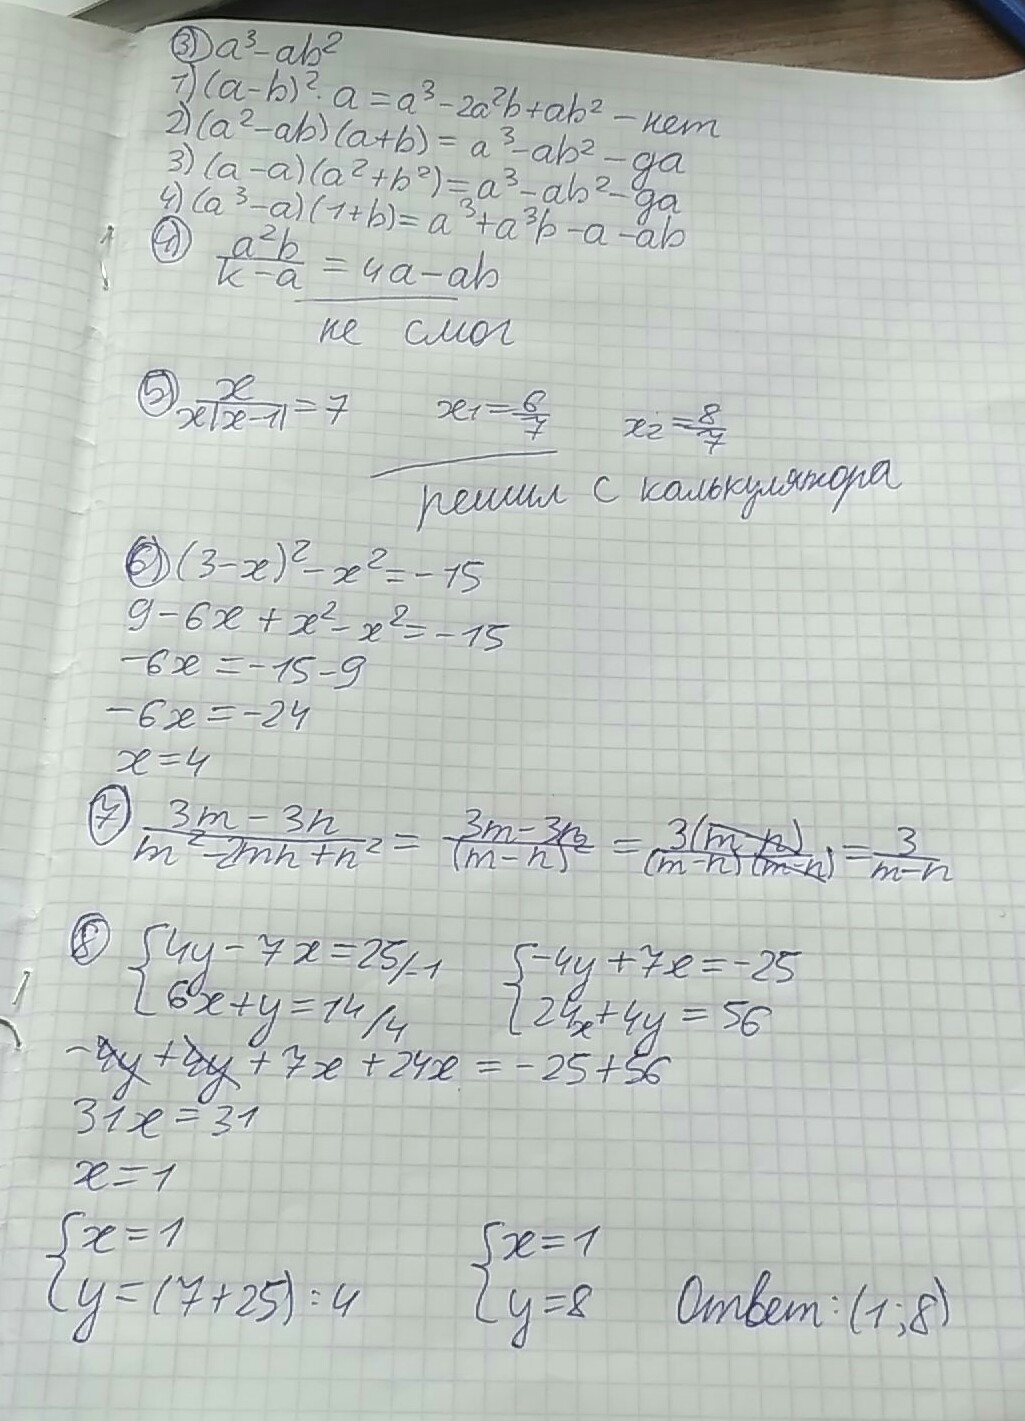 ③ a³-ab²
1) (a-b)²·a = a³-2a²b+ab² - нет
2) (a²-ab)(a+b) = a³-ab² - да
3) (a-a)(a²+b²) = a³-ab² - да
4) (a³-a)(1+b) = a³+a³b-a-ab
④ a²b/(k-a) = 4a-ab
не смог
⑤ x/(x|x-1|) = 7 x₁=6/7 x₂=8/7
решил с калькулятора
⑥ (3-x)²-x²=-15
9-6x+x²-x²=-15
-6x=-15-9
-6x=-24
x=4
⑦ (3m-3n)/(m²-2mn+n²) = (3m-3n)/(m-n)² = 3(m-n)/((m-n)(m-n)) = 3/(m-n)
⑧ {4y-7x=25/-1 {-4y+7x=-25
{6x+y=14/4 {24x+4y=56
-4y+4y+7x+24x=-25+56
31x=31
x=1
{x=1 {x=1
{y=(7+25):4 {y=8 Ответ: (1;8)